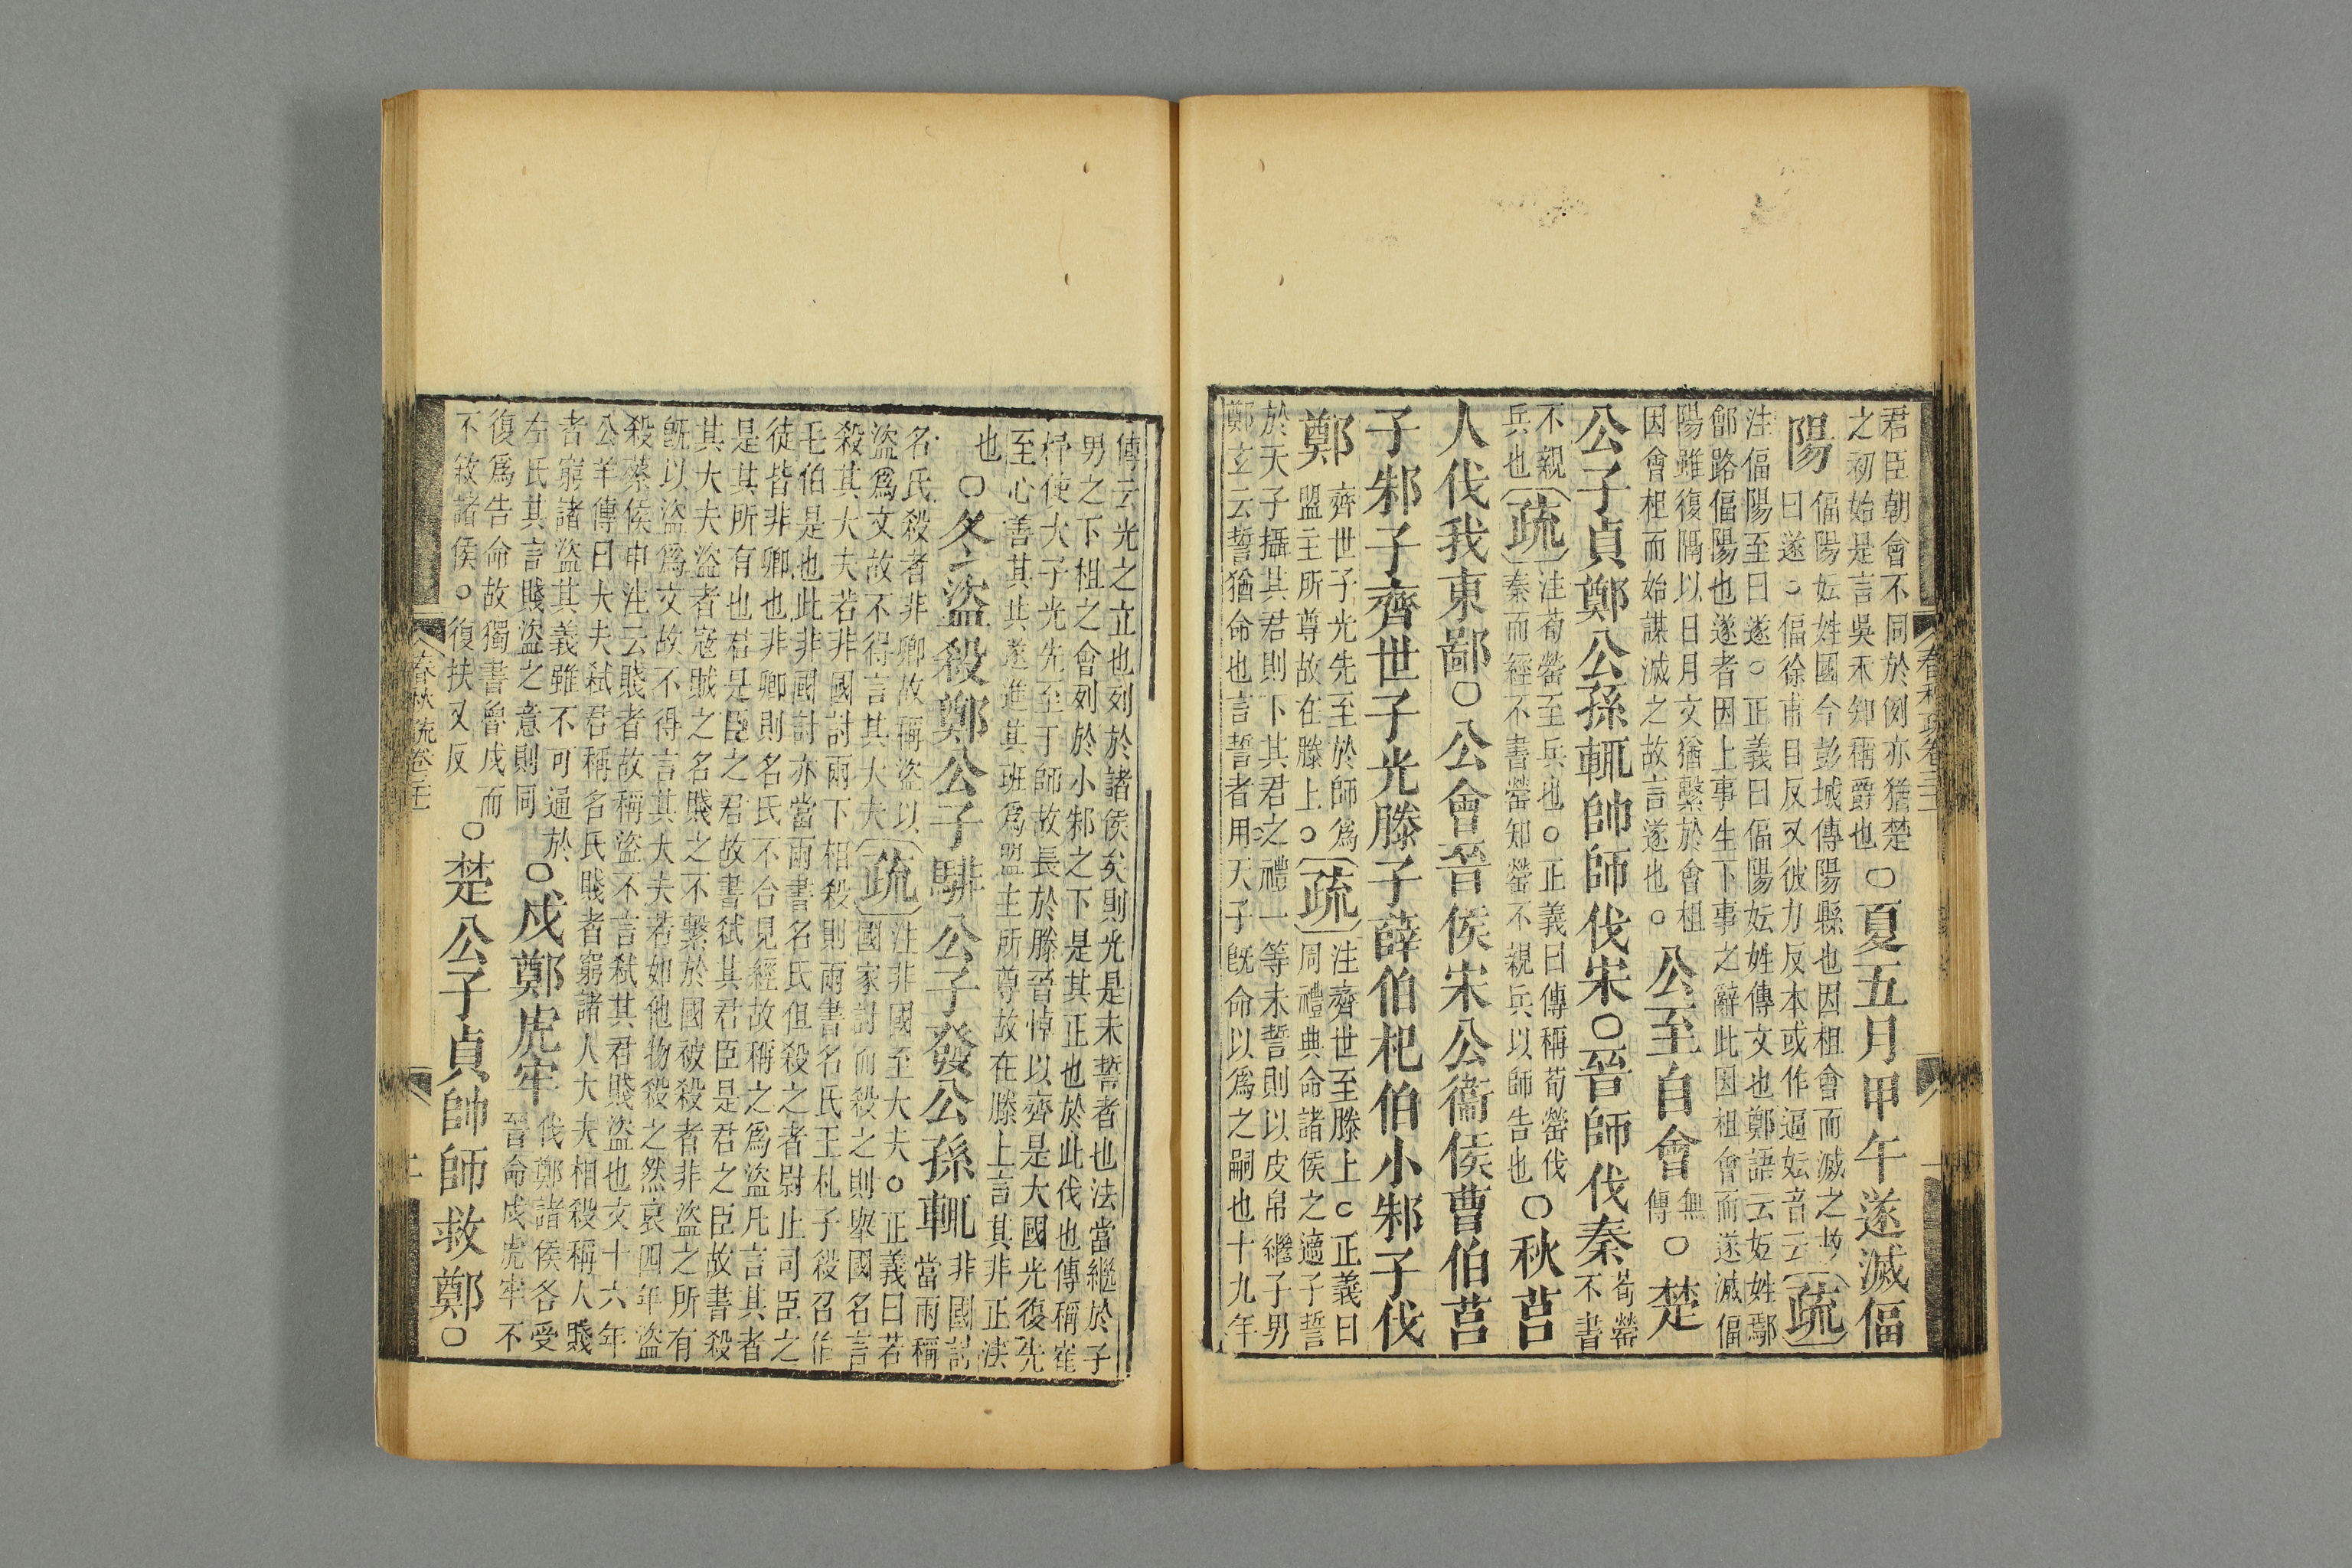 君臣朝會不同於例亦猶楚
之初始是言吳不知稱爵也
○夏五月甲午遂滅偪
陽
偪陽妘姓國今彭城傅陽縣也因柤會而滅之故
曰遂○偪徐甫目反又彼力反本或作逼妘音云
疏
注偪陽至曰遂○正義曰偪陽妘姓傳文也鄭語云妘姓鄢
鄶路偪陽也遂者因上事生下事之辭此因柤會而遂滅偪
陽雖復隔以日月文猶繫於會柤
因會柤而始謀滅之故言遂也○
公至自會
無
傳
○楚
公子貞鄭公孫輒帥師伐宋○晉師伐秦
荀罃
不書
不親
兵也
疏
注荀罃至兵也○正義曰傳稱荀罃伐
秦而經不書罃知罃不親兵以師告也
○秋莒
人伐我東鄙○公會晉侯宋公衞侯曹伯莒
子邾子齊世子光滕子薛伯杞伯小邾子伐
鄭
齊世子光先至於師爲
盟主所尊故在滕上○
疏
注齊世至滕上○正義曰
周禮典命諸侯之適子誓
於天子攝其君則下其君之禮一等未誓則以皮帛繼子男
鄭玄云誓猶命也言誓者用天子旣命以爲之嗣也十九年
傳云光之立也列於諸侯矣則光是未誓者也法當繼於子
男之下柤之會列於小邾之下是其正也於此伐也傳稱崔
杼使大子光先至于師故長於滕晉悼以齊是大國光復先
至心善其共遂進其班爲盟主所尊故在滕上言其非正法
也
○冬盜殺鄭公子騑公子發公孫輒
非國討
當兩稱
名氏殺者非卿故稱盜以
盜爲文故不得言其大夫
疏
注非國至大夫○正義曰若
國家討而殺之則舉國名言
殺其大夫若非國討兩下相殺則兩書名氏王札子殺召伯
毛伯是也此非國討亦當兩書名氏但殺之者尉止司臣之
徒皆非卿也非卿則名氏不合見經故稱之爲盜凡言其者
是其所有也君是臣之君故書弒其君臣是君之臣故書殺
其大夫盜者寇賊之名賤之不繫於國被殺者非盜之所有
旣以盜爲文故不得言其大夫若如他物殺之然哀四年盜
殺蔡侯申注云賤者故稱盜不言弒其君賤盜也文十六年
公羊傳曰大夫弒君稱名氏賤者窮諸人大夫相殺稱人賤
者窮諸盜其義雖不可通於
左氏其言賤盜之意則同
○戍鄭虎牢
伐鄭諸侯各受
晉命戍虎牢不
復爲告命故獨書魯戍而
不敘諸侯○復扶又反
○楚公子貞帥師救鄭○
春秋疏卷三十一